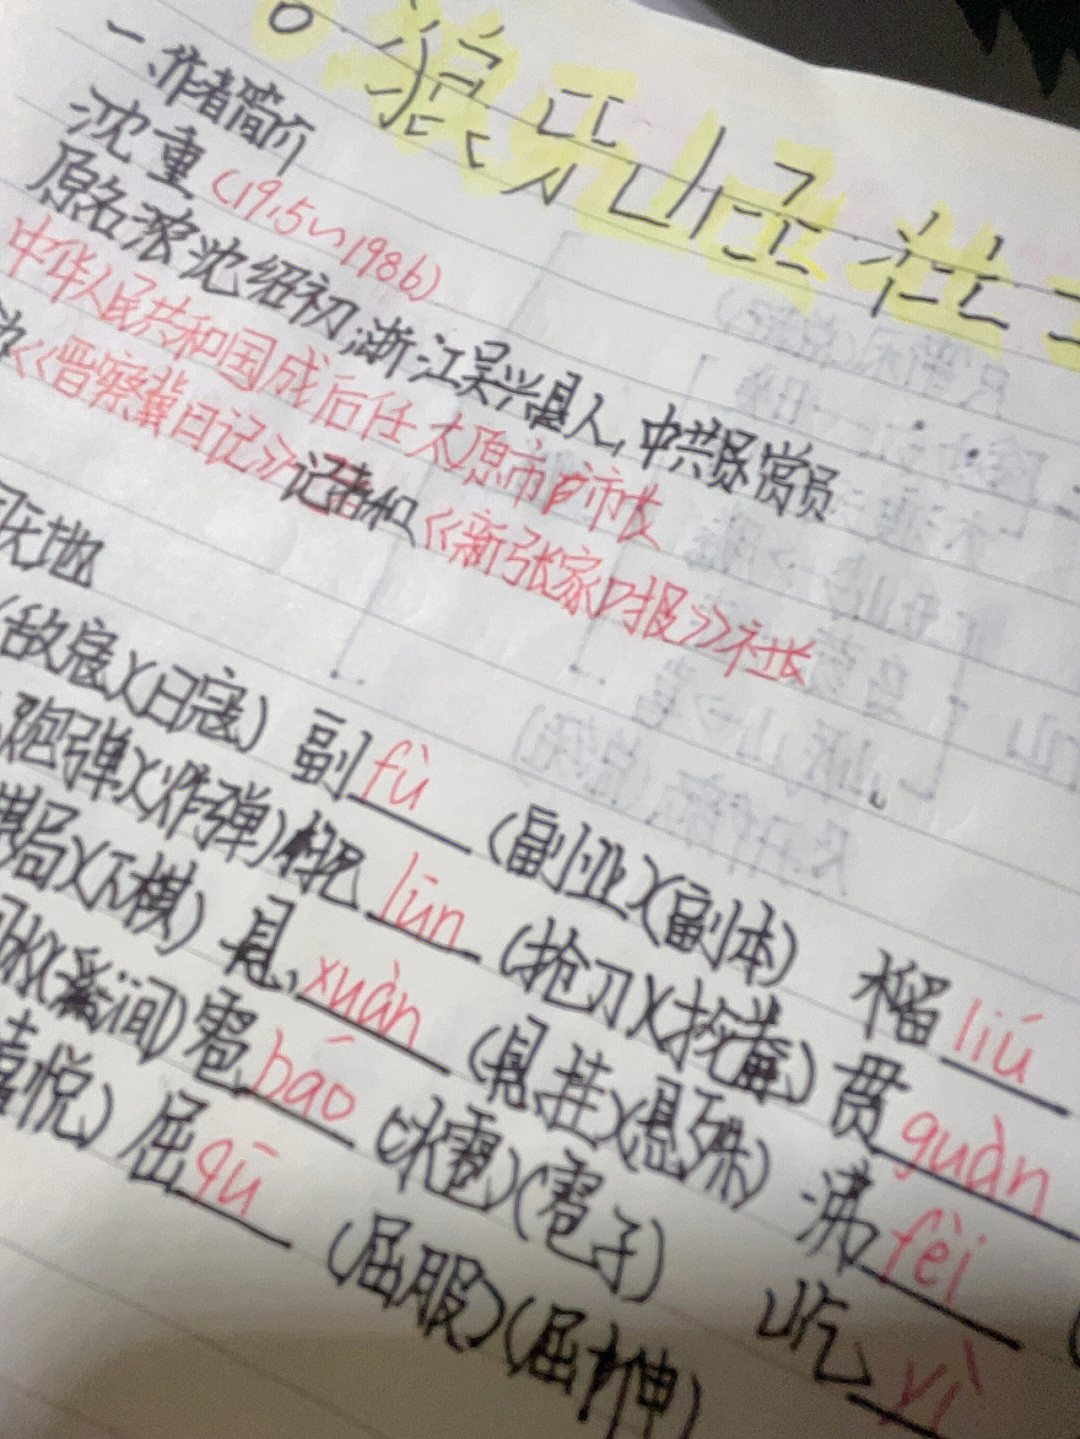 狼牙山五壮
一、作者简介
沈重(1915~1986)
原名沈绍初,浙江吴兴县人,中共党员
中华人民共和国成后任太原市市长
《晋察冀日记》记者和《新张家口报》社长
天地
(敌寇)(日寇) 副 fù (副业)(副本) 榴 liú
炮弹)(炸弹) 抡 lūn (抢刀) 贯 guàn
棋局)(下棋) 悬 xuàn (悬挂)(悬殊) 沸 fèi
涧) 雹 báo (冰雹)(雹子) 屹 yì
喜悦) 屈 qū (屈服)(屈伸)